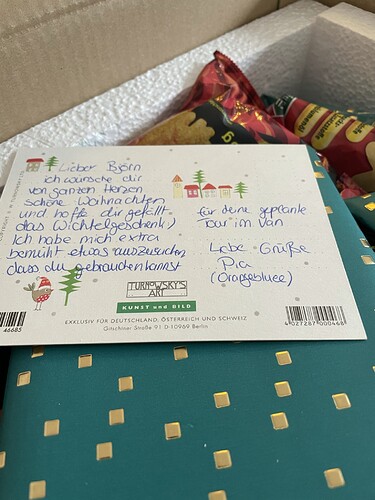 Lieber Björn
ich wünsche dir
von ganzen Herzen
schöne Weihnachten
und hoffe dir gefällt
das Wichtelgeschenk:)
Ich habe mich extra
bemüht etwas auszusuchen
dass du gebrauchen kannst
für deine geplante
Tour im Van
Liebe Grüße
Pia
(Orangebluee)
TURNOWSKY'S
ART
KUNST und BILD
EXKLUSIV FÜR DEUTSCHLAND, ÖSTERREICH UND SCHWEIZ
Gitschiner Straße 91 D-10969 Berlin
46685
4 027287 000468